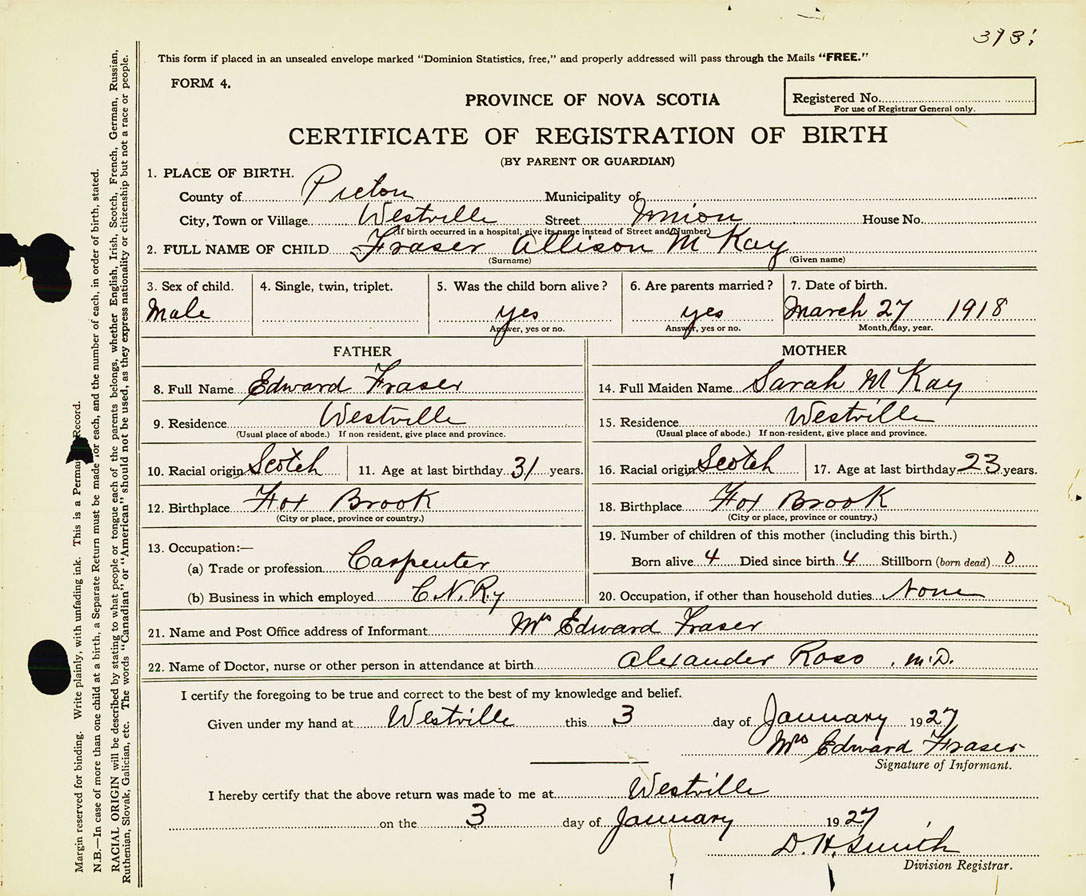 3/3;
This form if placed in an unsealed envelope marked "Dominion Statistics, free," and properly addressed will pass through the Mails "FREE."
FORM 4.
PROVINCE OF NOVA SCOTIA
Registered No.
For use of Registrar General only.
CERTIFICATE OF REGISTRATION OF BIRTH
(BY PARENT OR GUARDIAN)
1. PLACE OF BIRTH.
County of Pictou Municipality of
City, Town or Village Westville Street Union House No.
(If birth occurred in a hospital, give its name instead of Street and Number)
2. FULL NAME OF CHILD Fraser Allison McKay
(Surname) (Given name)
3. Sex of child. 4. Single, twin, triplet. 5. Was the child born alive? 6. Are parents married? 7. Date of birth.
Male yes yes March 27 1918
Answer, yes or no. Answer, yes or no. Month, day, year.
FATHER MOTHER
8. Full Name Edward Fraser 14. Full Maiden Name Sarah McKay
9. Residence Westville 15. Residence Westville
(Usual place of abode.) If non resident, give place and province. (Usual place of abode.) If non-resident, give place and province.
10. Racial origin Scotch 11. Age at last birthday 31 years. 16. Racial origin Scotch 17. Age at last birthday 23 years.
12. Birthplace Fox Brook 18. Birthplace Fox Brook
(City or place, province or country.) (City or place, province or country.)
13. Occupation:— 19. Number of children of this mother (including this birth.)
(a) Trade or profession Carpenter Born alive 4 Died since birth 4 Stillborn (born dead) 0
(b) Business in which employed C.N.Ry 20. Occupation, if other than household duties None
21. Name and Post Office address of Informant Mrs Edward Fraser
22. Name of Doctor, nurse or other person in attendance at birth Alexander Ross, M.D.
I certify the foregoing to be true and correct to the best of my knowledge and belief.
Given under my hand at Westville this 3 day of January 1927
Mrs Edward Fraser
Signature of Informant.
I hereby certify that the above return was made to me at Westville
on the 3 day of January 1927
D. H. Smith
Division Registrar.
Margin reserved for binding. Write plainly, with unfading ink. This is a Permanent Record.
N.B.—In case of more than one child at a birth, a Separate Return must be made for each, and the number of each, in order of birth, stated.
RACIAL ORIGIN will be described by stating to what people or tongue each of the parents belongs, whether English, Irish, Scotch, French, German, Russian,
Ruthenian, Slovak, Galician, etc. The words "Canadian" or "American" should not be used, as they express nationality or citizenship but not a race or people.